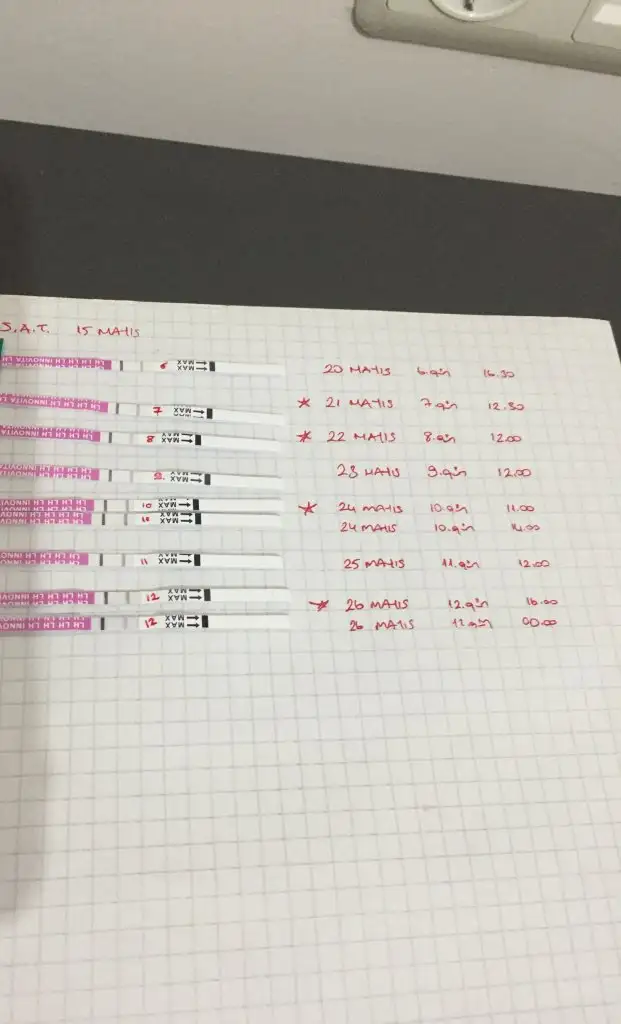 S.A.T. 15 MATIS
LH LH LH INNOVITA LH 6 MAX 20 MATIS 6.gün 16.30
LH LH LH LH INNOVITA 7 MAX * 21 MATIS 7.gün 12.30
LH LH LH LH INNOVITA 8 MAX * 22 MATIS 8.gün 12.00
LH LH LH LH INNOVITA 9. MAX 23 MATIS 9.gün 12.00
LH LH LH LH INNOVI 10 MAX * 24 MATIS 10.gün 11.00
LH LH LH LH INNOVI 10 MAX 24 MATIS 10.gün 14.00
LH LH LH LH INNO 11 MAX 25 MATIS 11.gün 12.00
LH LH LH LH INNOV 12 MAX * 26 MATIS 12.gün 16.00
LH LH LH LH INNOV 12 MAX 26 MATIS 12.gün 00.00